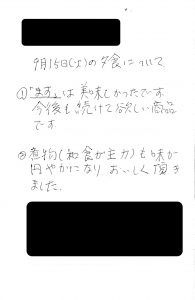 9月15日(火)の夕食について
①「ます」は美味しかったです
今後も続けて欲しい商品
です
②煮物(和食が主力)も味が
円やかになりおいしく頂き
ました.